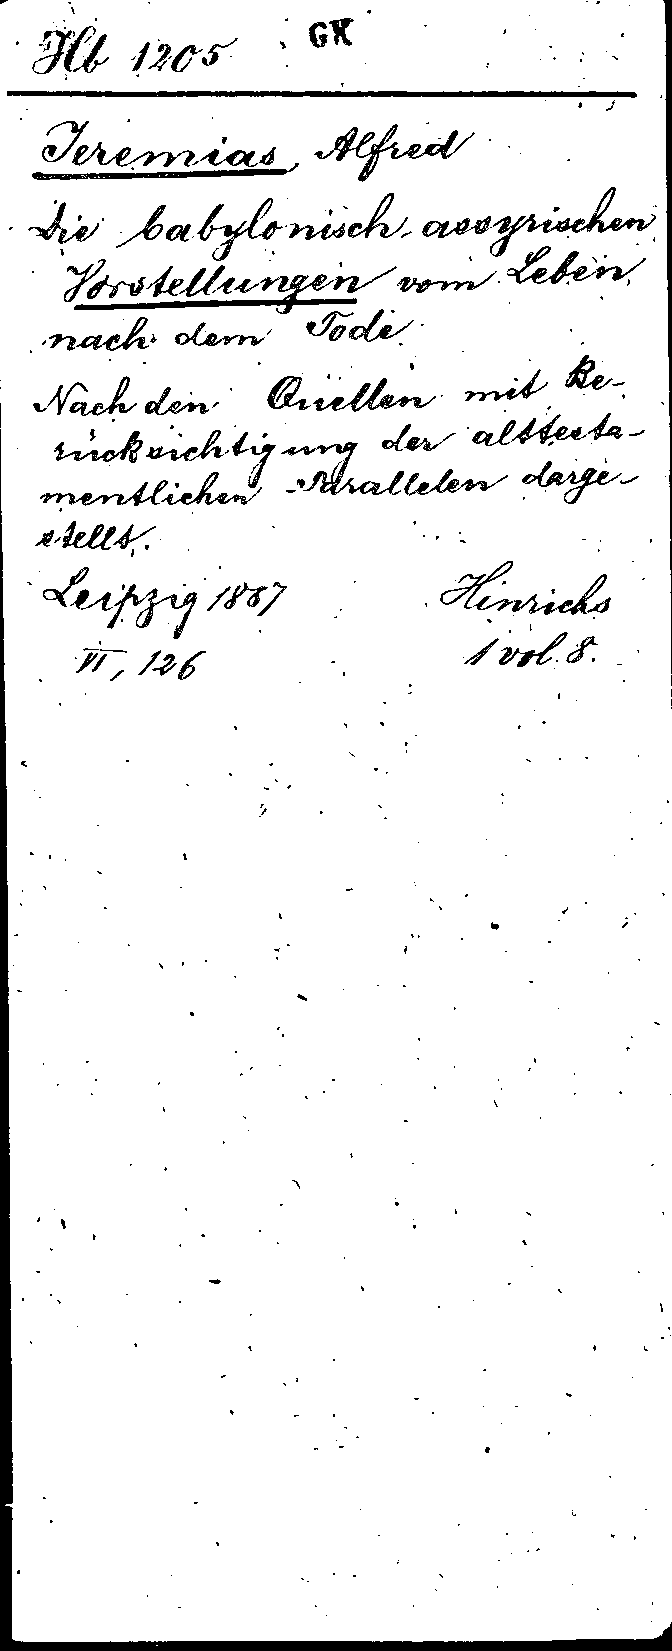 Hb 1205 GX
Jeremias, Alfred
Die babylonisch-assyrischen
Vorstellungen vom Leben
nach dem Tode.
Nach den Quellen mit Be-
rücksichtigung der alttesta-
mentlichen Parallelen darge-
stellt.
Leipzig 1887 Hinrichs
VI, 126 1 vol. 8.